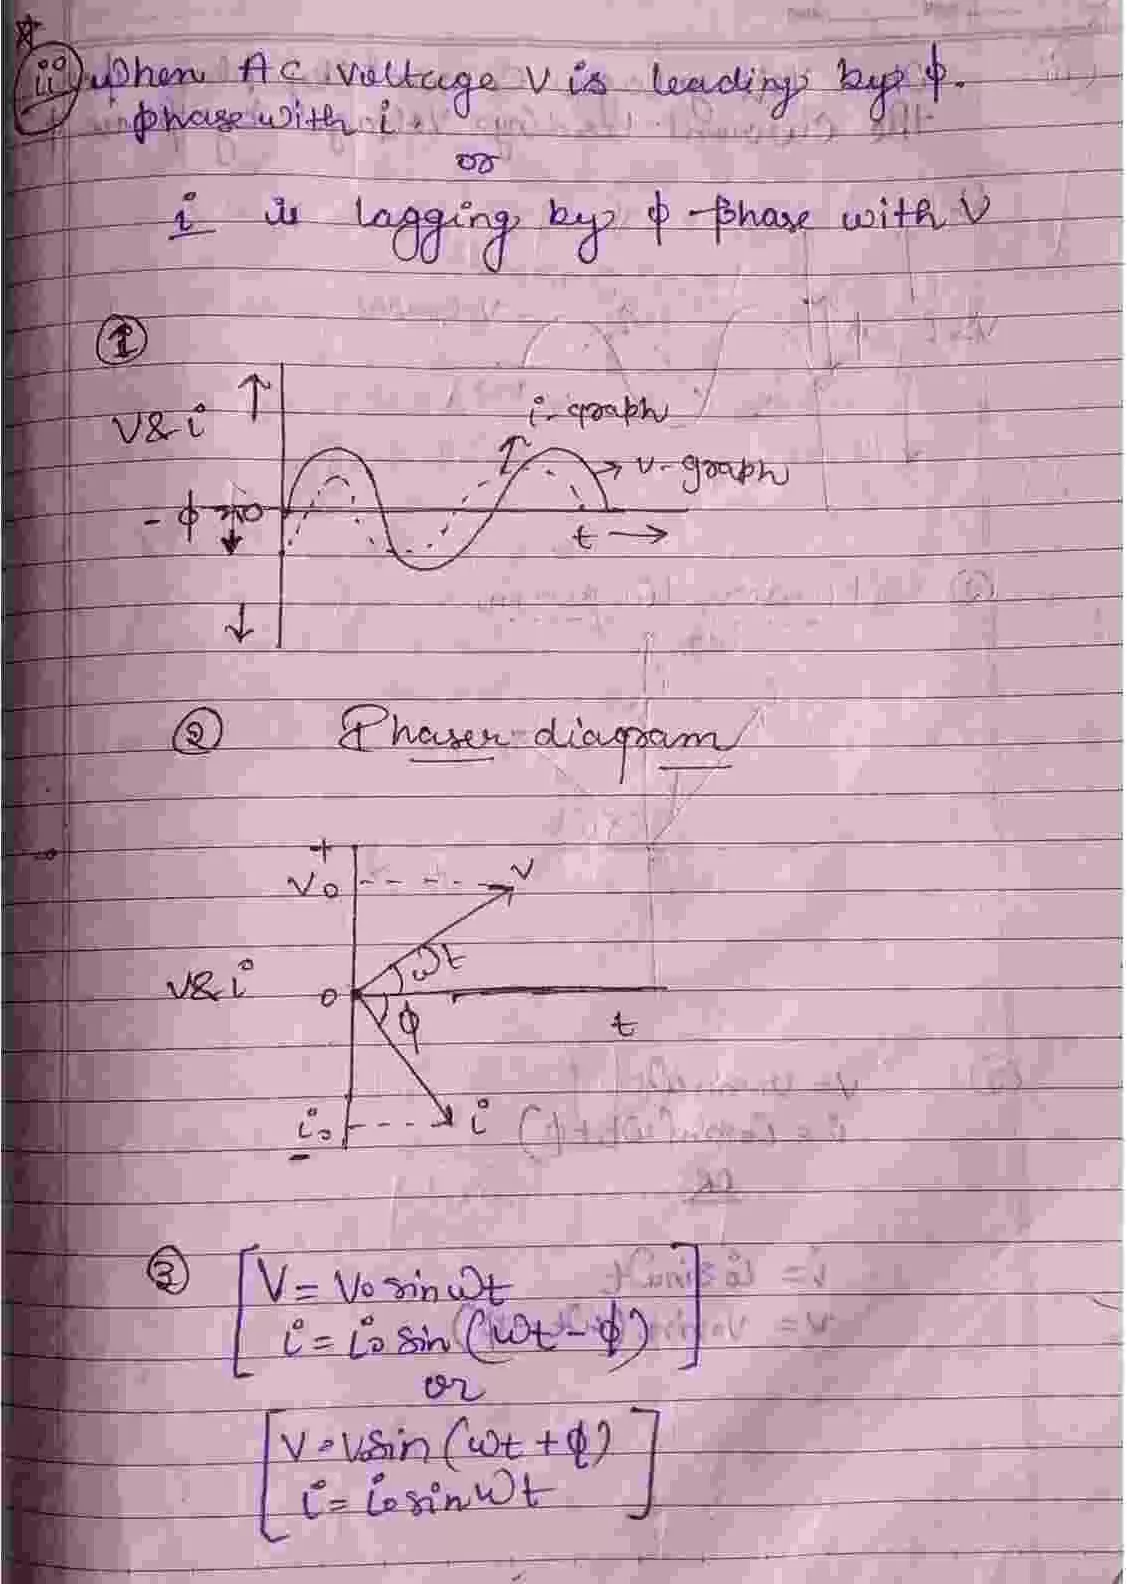 ii) When AC voltage V is leading by ϕ.
phase with i
or
i is lagging by ϕ phase with V
①
V & i ↑
i-graph
→ v-graph
- ϕ
t →
↓
② Phaser diagram
+
V₀
V
ωt
V & i
0
ϕ
t
i₀
i
-
③ [V = V₀ sin ωt
i = i₀ sin (ωt - ϕ)]
or
[V = V₀sin (ωt + ϕ)
i = i₀ sin ωt]